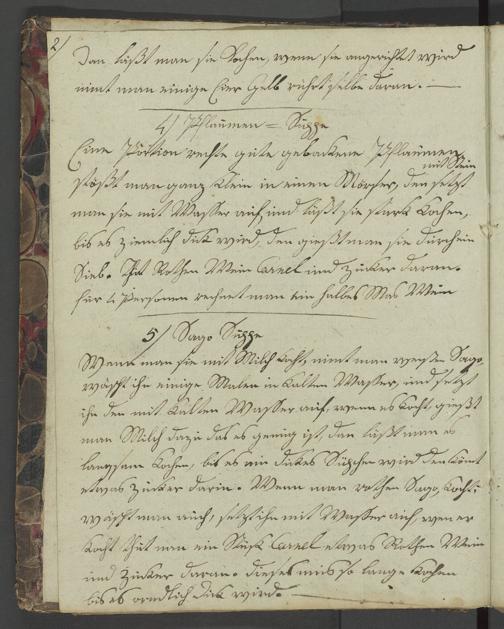 2/
Dan läßt man sie Kochen, wenn sie angerichtet wird
nimt man einige Eier Gelb rührt selbe daran. —
4/ Pflaumen = Suppe
Eine Portion rechte gute gebackene Pflaumen
mit Stein
stößt man ganz klein in einen Mörser, den setzt
man sie mit Wasser auf, und läßt sie stark Kochen,
bis es ziemlich dick wird, den gießt man sie durch ein
Sieb. Thut Rothen Wein Canel und Zucker daran.
für 4 Personen rechnet man ein halbes Mas Wein
5/ Sago Suppe
Wenn man sie mit Milch kocht, nimt man weißen Sago,
wäscht ihn einige Malen in kalten Wasser, und setzt
ihn den mit kalten Wasser auf, wenn es kocht, gießt
man Milch dazu das es genug ist, dan läßt man es
langsam kochen, bis es ein dickes Süpchen wird den kömt
etwas Zucker darin. Wenn man rothen Sago, kocht:
wäscht man auch, setzt ihn mit Wasser auf, wen er
kocht thut man ein Stück Canel etwas Rothen Wein
und Zucker daran. dieses mus so lange kochen
bis es ordlich dick wird. —